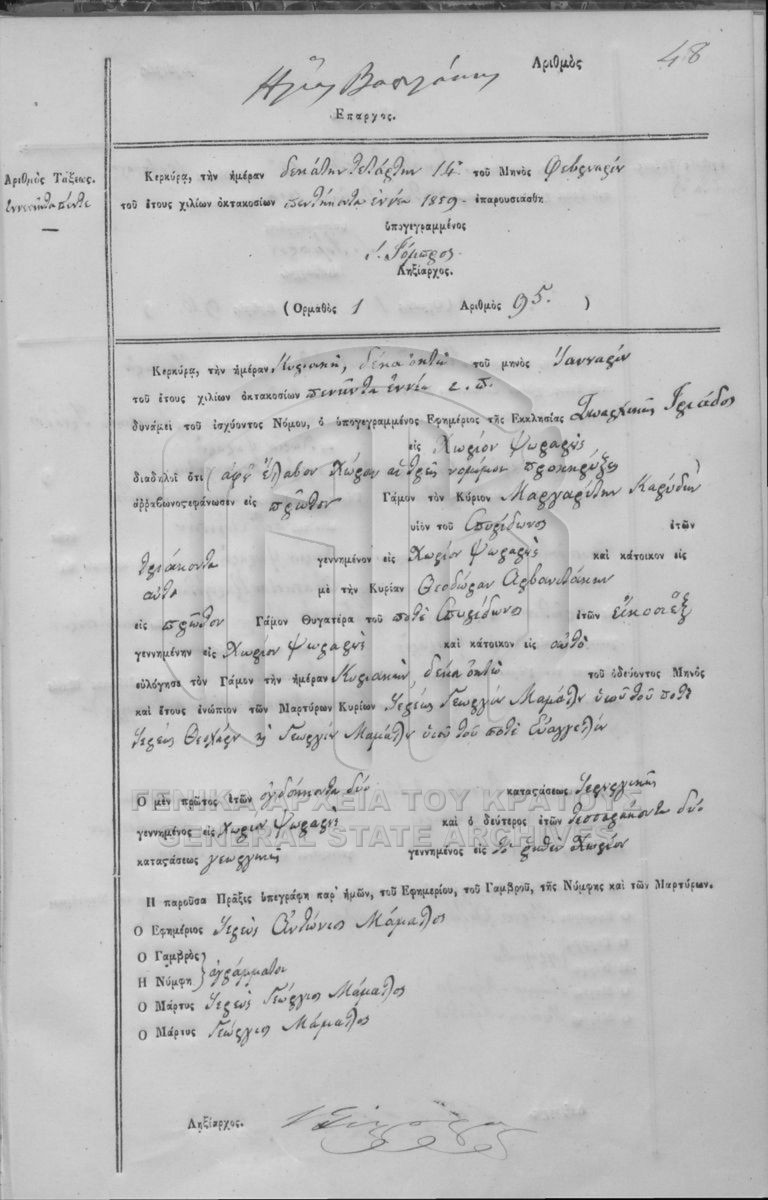 Ἀριθμὸς 48
Ἔπαρχος.
Ἀριθμὸς Τάξεως.
ἐννενῆντα πέντε
Κερκύρᾳ, τὴν ἡμέραν δεκάτην τετάρτην 14ῃ τοῦ Μηνὸς Φεβρουαρίου
τοῦ ἔτους χιλίων ὀκτακοσίων πεντήκοντα ἐννέα 1859 - ἐπαρουσιάσθη
ὑπογεγραμμένος
Ληξίαρχος.
(Ὁρμαθὸς 1 Ἀριθμὸς 95. )
Κερκύρᾳ, τὴν ἡμέραν Κυριακὴ, δέκα ὀκτὼ τοῦ μηνὸς Ἰανναρίου
τοῦ ἔτους χιλίων ὀκτακοσίων πενῆντα ἐννέα ε. π.
δυνάμει τοῦ ἰσχύοντος Νόμου, ὁ ὑπογεγραμμένος Ἐφημέριος τῆς Ἐκκλησίας Τριάδος
εἰς Χωρίον Ψωραρούς
διαδηλοῖ ὅτι (ἀφ' οὗ ἔλαβον Χώραν αἱ τρεῖς νόμιμοι προκηρύξεις)
ἀρραβωνοςεφάνωσεν εἰς πρῶτον Γάμον τὸν Κύριον Μαργαρίτην Καρύδην
υἱὸν τοῦ Σπυρίδωνος ἐτῶν
τριάκοντα γεννημένον εἰς Χωρίον Ψωραρούς καὶ κάτοικον εἰς
αὐτὸ μὲ τὴν Κυρίαν Θεοδώραν Ἀρβανιτάκην
εἰς πρῶτον Γάμον Θυγατέρα τοῦ ποτὲ Σπυρίδωνος ἐτῶν εἴκοσι ἓξ
γεννημένην εἰς Χωρίον Ψωραρούς καὶ κάτοικον εἰς αὐτὸ
εὐλόγησε τὸν Γάμον τὴν ἡμέραν Κυριακὴν, δέκα ὀκτὼ τοῦ ὁδεύοντος Μηνὸς
καὶ ἔτους ἐνώπιον τῶν Μαρτύρων Κυρίων Ἱερέως Γεωργίου Μαμάλου υἱοῦ τοῦ ποτὲ
Ἱερέως Θεοχάρη καὶ Γεωργίου Μαμάλου υἱοῦ τοῦ ποτὲ Εὐαγγελίου
Ὁ μὲν πρῶτος ἐτῶν ὀγδοήκοντα δύο καταςάσεως Ἱερουργικῆς
γεννημένος εἰς Χωρίον Ψωραρούς καὶ ὁ δεύτερος ἐτῶν τεσσαράκοντα δύο
καταςάσεως γεωργικῆς γεννημένος εἰς τὸ ῥηθὲν Χωρίον
ΓΕΝΙΚΑ ΑΡΧΕΙΑ ΤΟΥ ΚΡΑΤΟΥΣ
GENERAL STATE ARCHIVES
Ἡ παροῦσα Πρᾶξις ὑπεγράφη παρ' ἡμῶν, τοῦ Ἐφημερίου, τοῦ Γαμβροῦ, τῆς Νύμφης καὶ τῶν Μαρτύρων.
Ὁ Ἐφημέριος Ἱερεὺς Ἀντώνιος Μάμαλος
Ὁ Γαμβρὸς
Ἡ Νύμφη } ἀγράμματοι
Ὁ Μάρτυς Ἱερεὺς Γεώργιος Μάμαλος
Ὁ Μάρτυς Γεώργιος Μάμαλος
Ληξίαρχος.